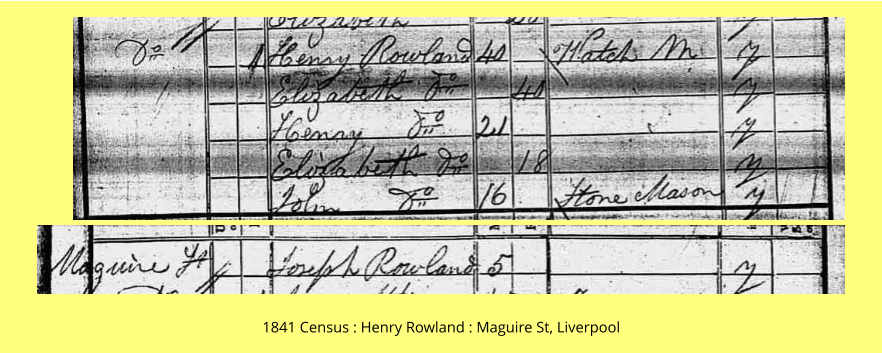 Elizabeth
Do 1 Henry Rowland 40 Watch M y
Elizabeth Do 40 y
Henry Do 21 y
Elizabeth Do 18 y
John Do 16 Stone Mason y
Maguire St Joseph Rowland 5 y
1841 Census : Henry Rowland : Maguire St, Liverpool